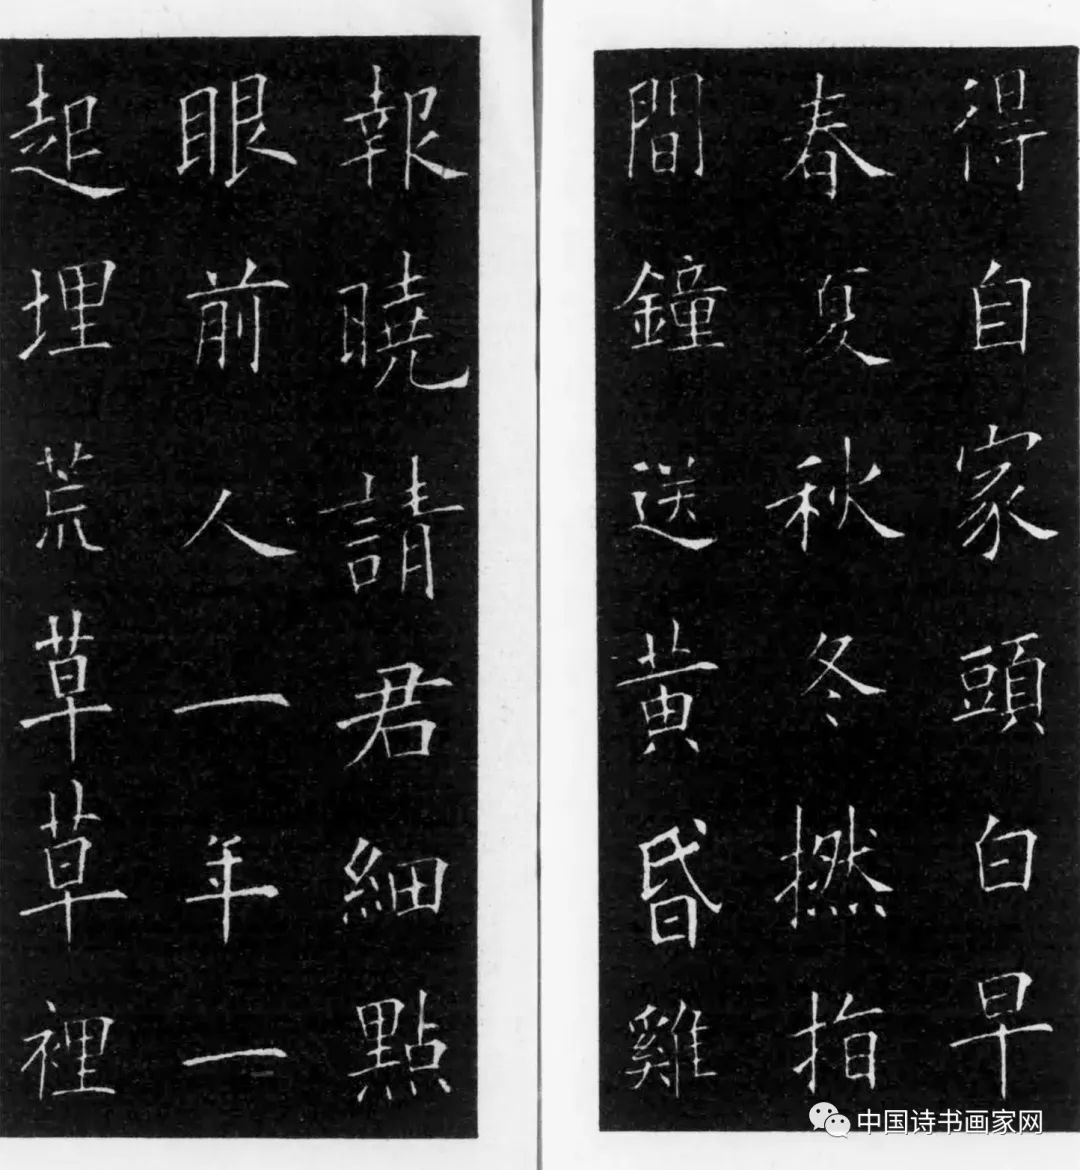 得自家頭白早
春夏秋冬撚指
間鐘送黄昏雞
報曉請君細點
眼前人一年一
起埋荒草草裡
中国诗书画家网